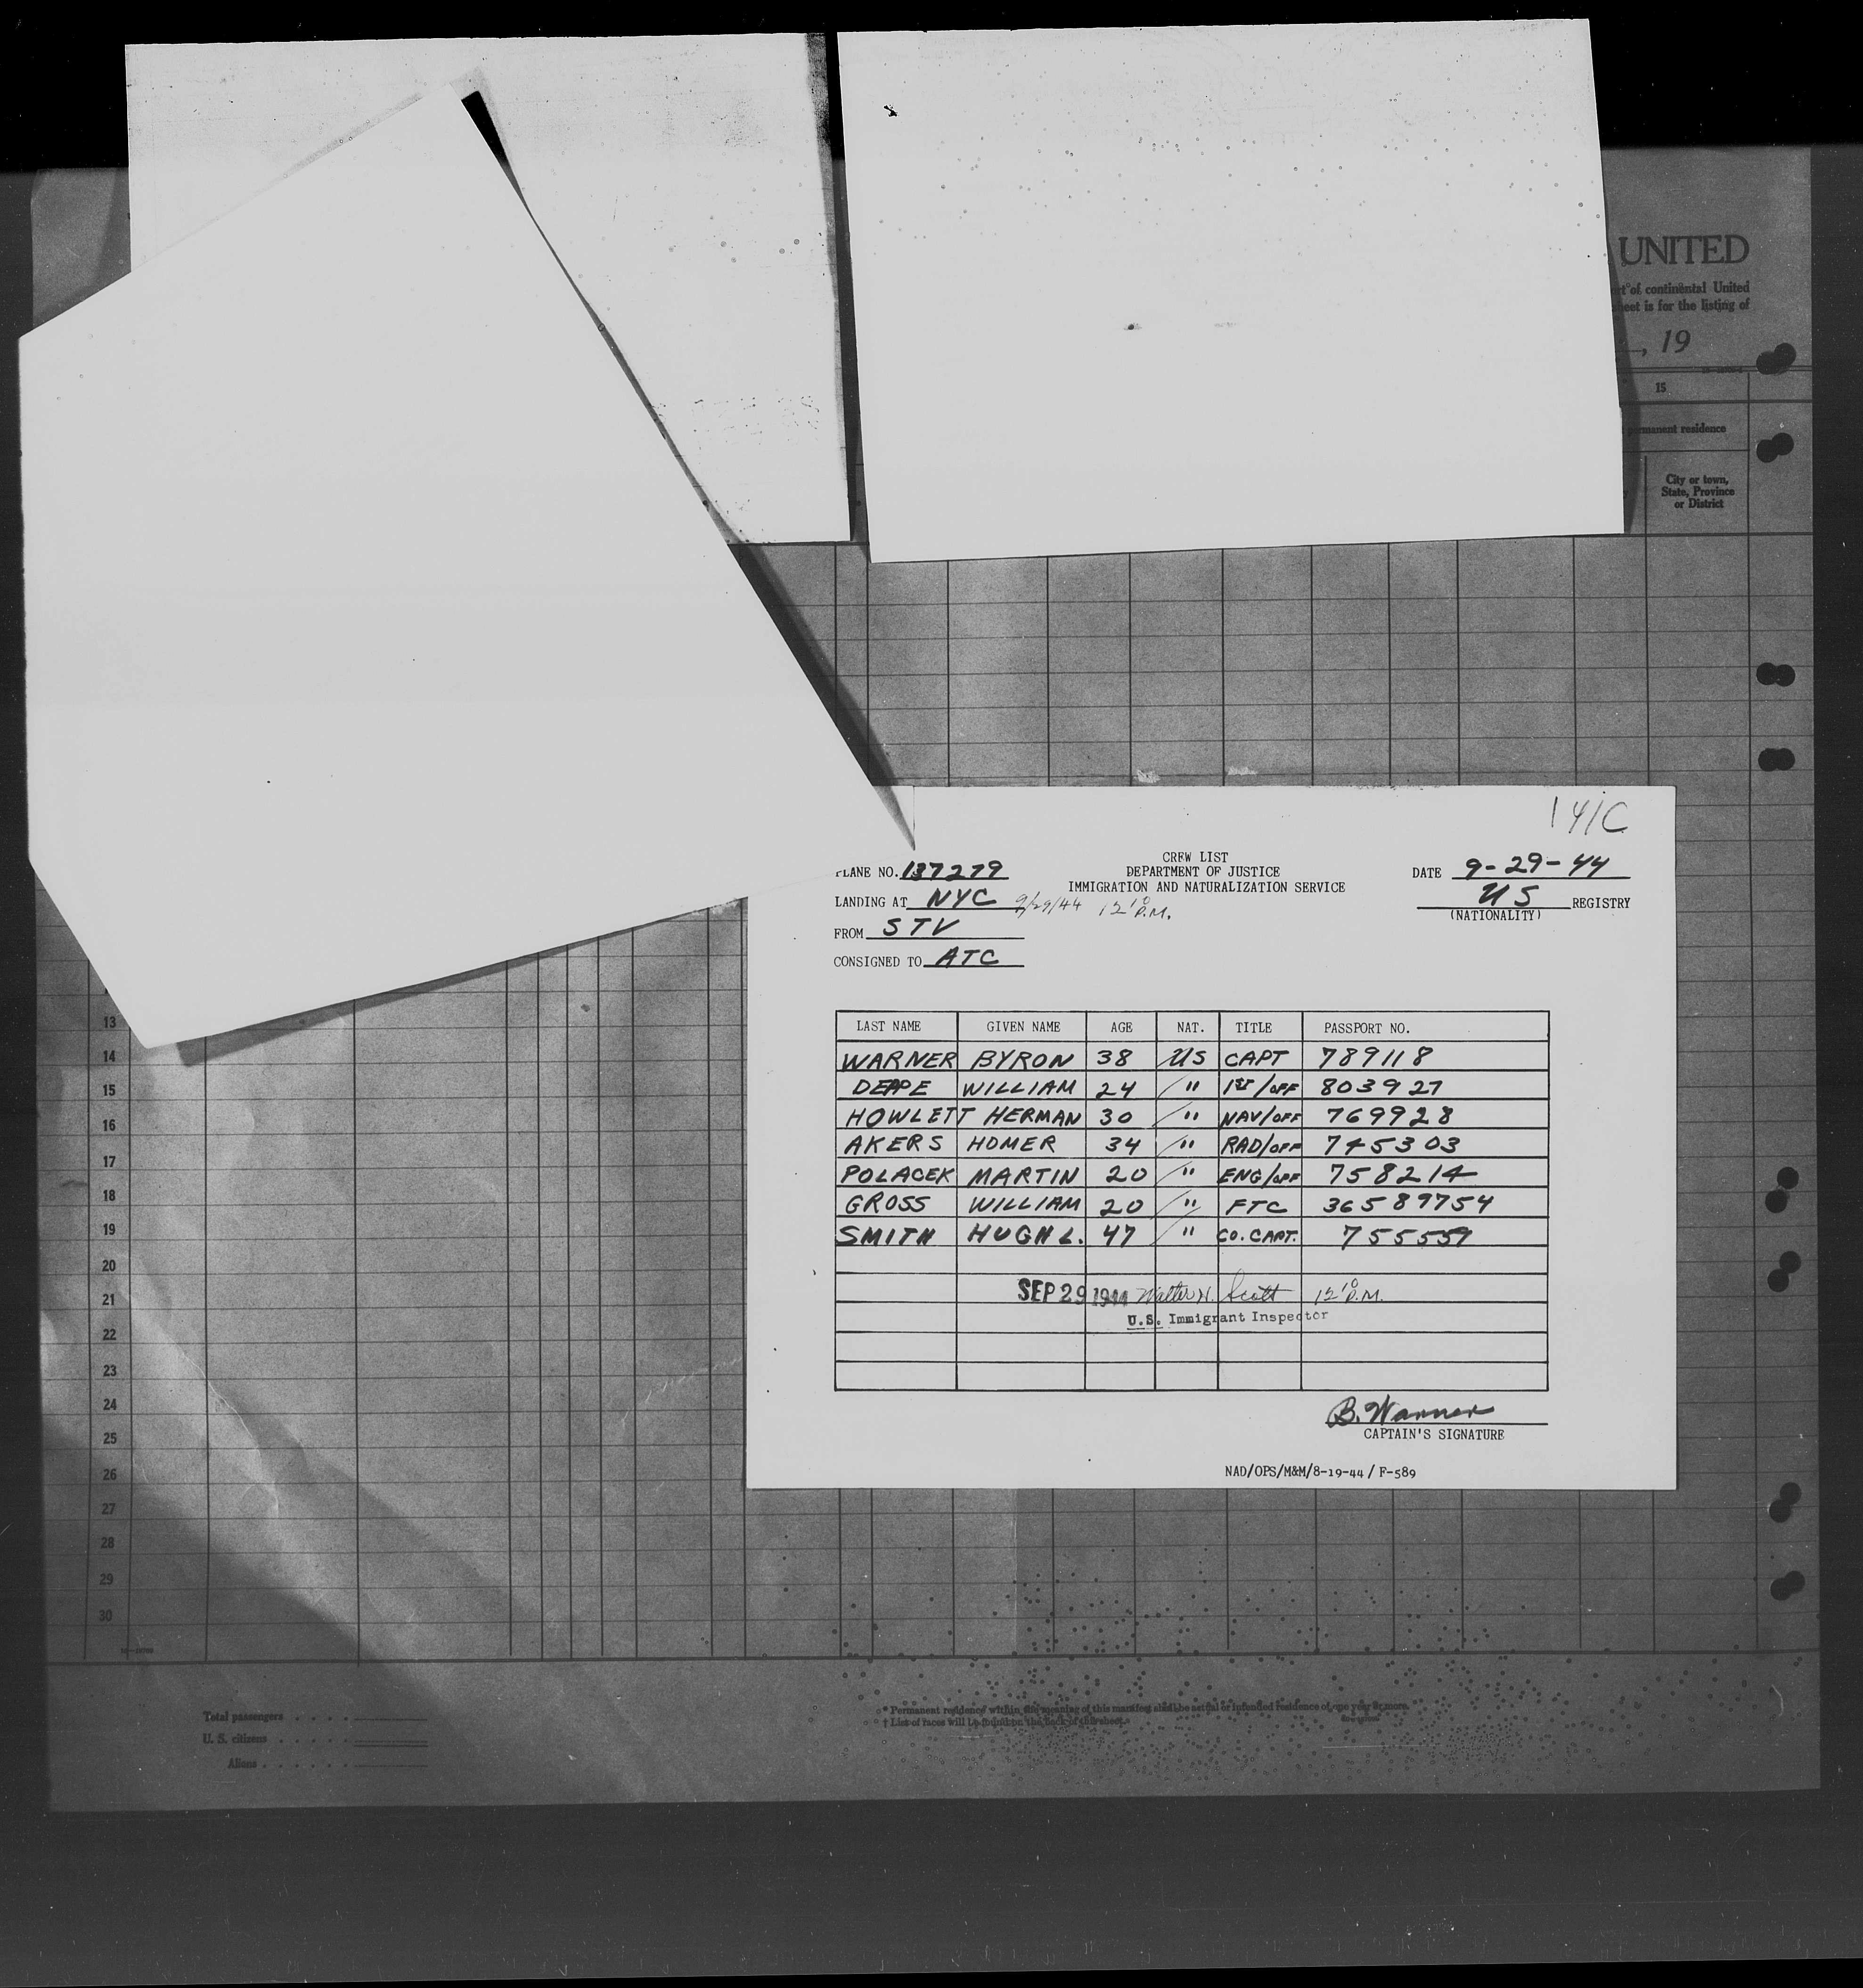 UNITED
of continental United
sheet is for the listing of
, 19
15
permanent residence
City or town,
State, Province
or District
141C
CREW LIST
DEPARTMENT OF JUSTICE
IMMIGRATION AND NATURALIZATION SERVICE
PLANE NO. 137279
DATE 9-29-44
LANDING AT NYC 9/29/44 12 10 P.M.
US REGISTRY
(NATIONALITY)
FROM STV
CONSIGNED TO ATC
LAST NAME GIVEN NAME AGE NAT. TITLE PASSPORT NO.
WARNER BYRON 38 US CAPT 789118
DEPPE WILLIAM 24 " 1ST/OFF 803927
HOWLETT HERMAN 30 " NAV/OFF 769928
AKERS HOMER 34 " RAD/OFF 745303
POLACEK MARTIN 20 " ENG/OFF 758214
GROSS WILLIAM 20 " FTC 36589754
SMITH HUGH L. 47 " CO. CAPT. 755559
SEP 29 1944 Walter H. Scott 12 10 P.M.
U.S. Immigrant Inspector
B. Warner
CAPTAIN'S SIGNATURE
NAD/OPS/M&M/8-19-44 / F-589
13
14
15
16
17
18
19
20
21
22
23
24
25
26
27
28
29
30
Total passengers
U. S. citizens
Aliens
* Permanent residence within the meaning of this manifest shall be actual or intended residence of one year or more.
† List of races will be found on the back of this sheet.